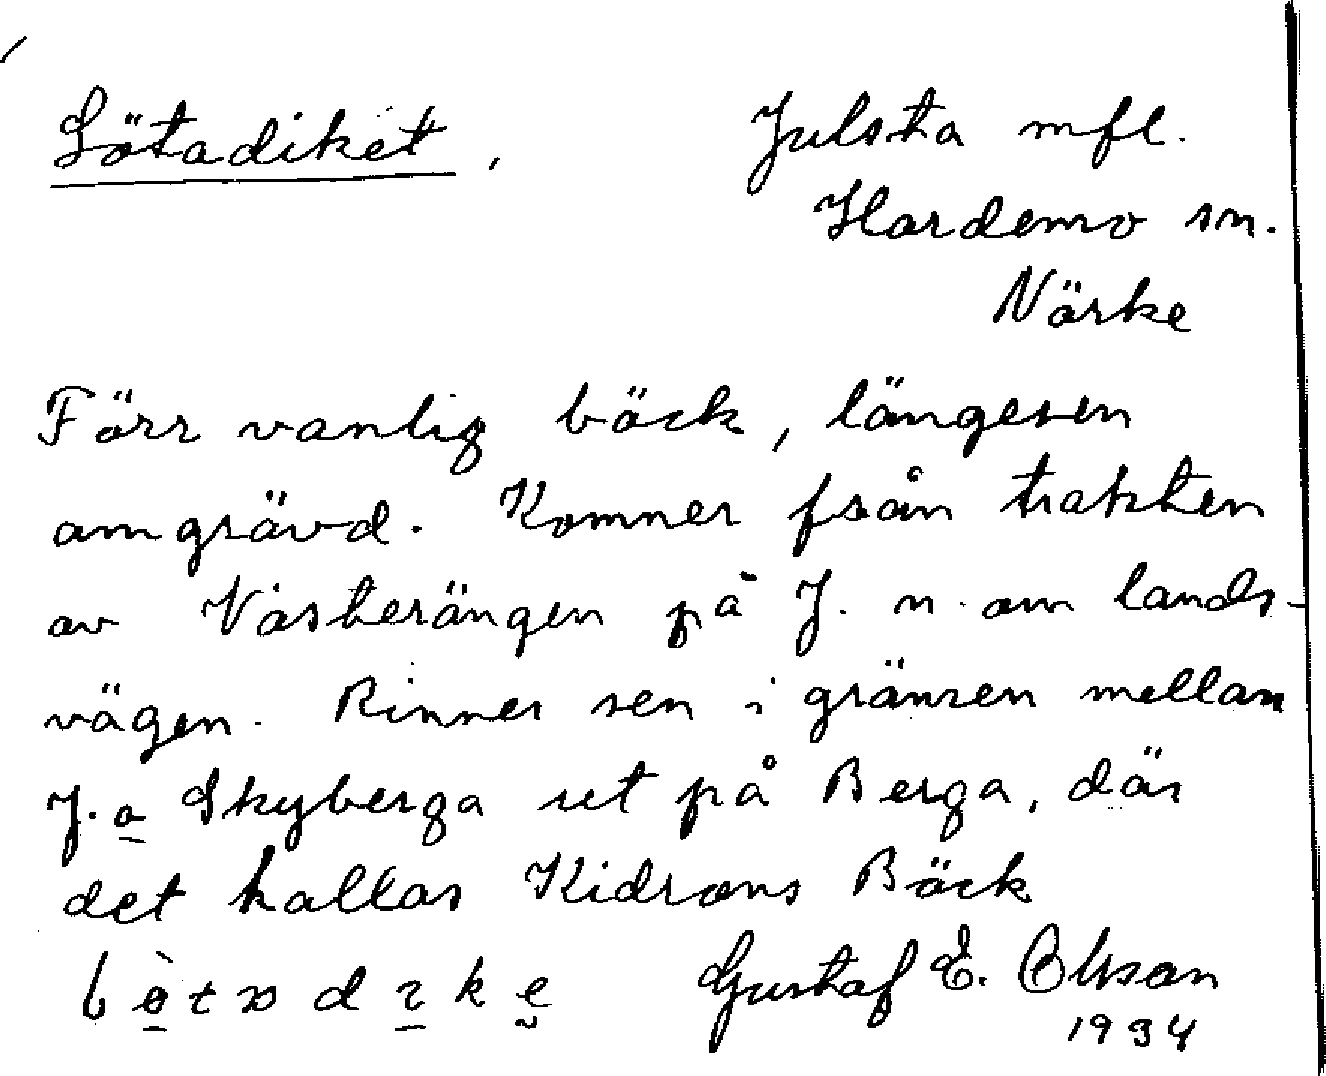 Sötadiket,
Julsta mfl.
Hardemo sn.
Närke
Förr vanlig bäck, längesen
omgrävd. Kommer från trakten
av Västerängen på J. n. om lands-
vägen. Rinner sen i gränsen mellan
J. o Skyberga ut på Berga, där
det kallas Kidrons Bäck
Gustaf E. Olsson
1934